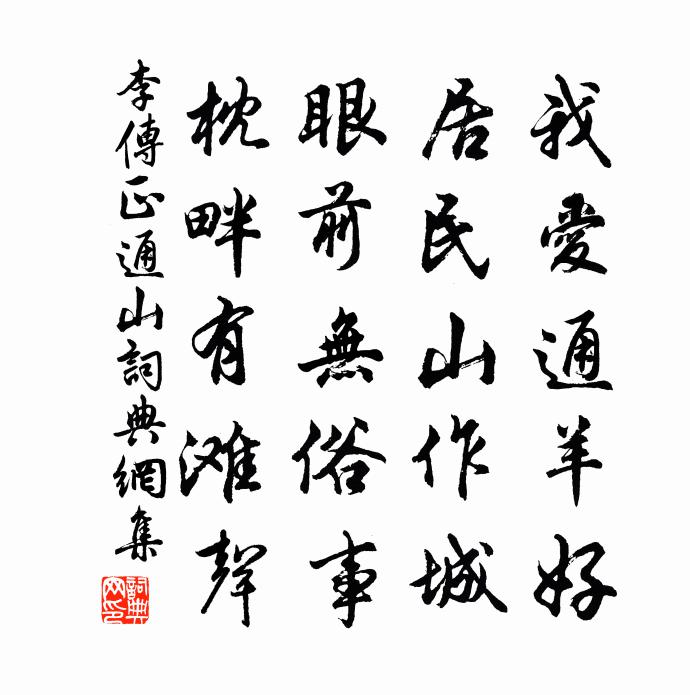 我愛通羊好
居民山作城
眼前無俗事
枕畔有滩聲
李傳正通山詞典網集
詞典网印